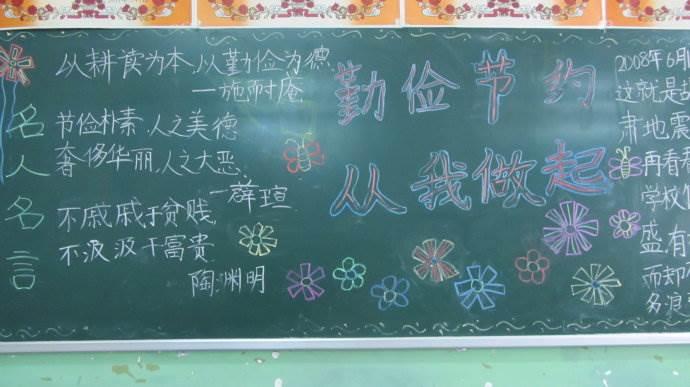 名人名言
以耕读为本,以勤俭为德
—施耐庵
节俭朴素,人之美德
奢侈华丽,人之大恶
—薛瑄
不戚戚于贫贱
不汲汲于富贵
陶渊明
勤俭节约
从我做起
2008年6月
这就是
肃地震
再看看
学校
盛有
而却
多浪